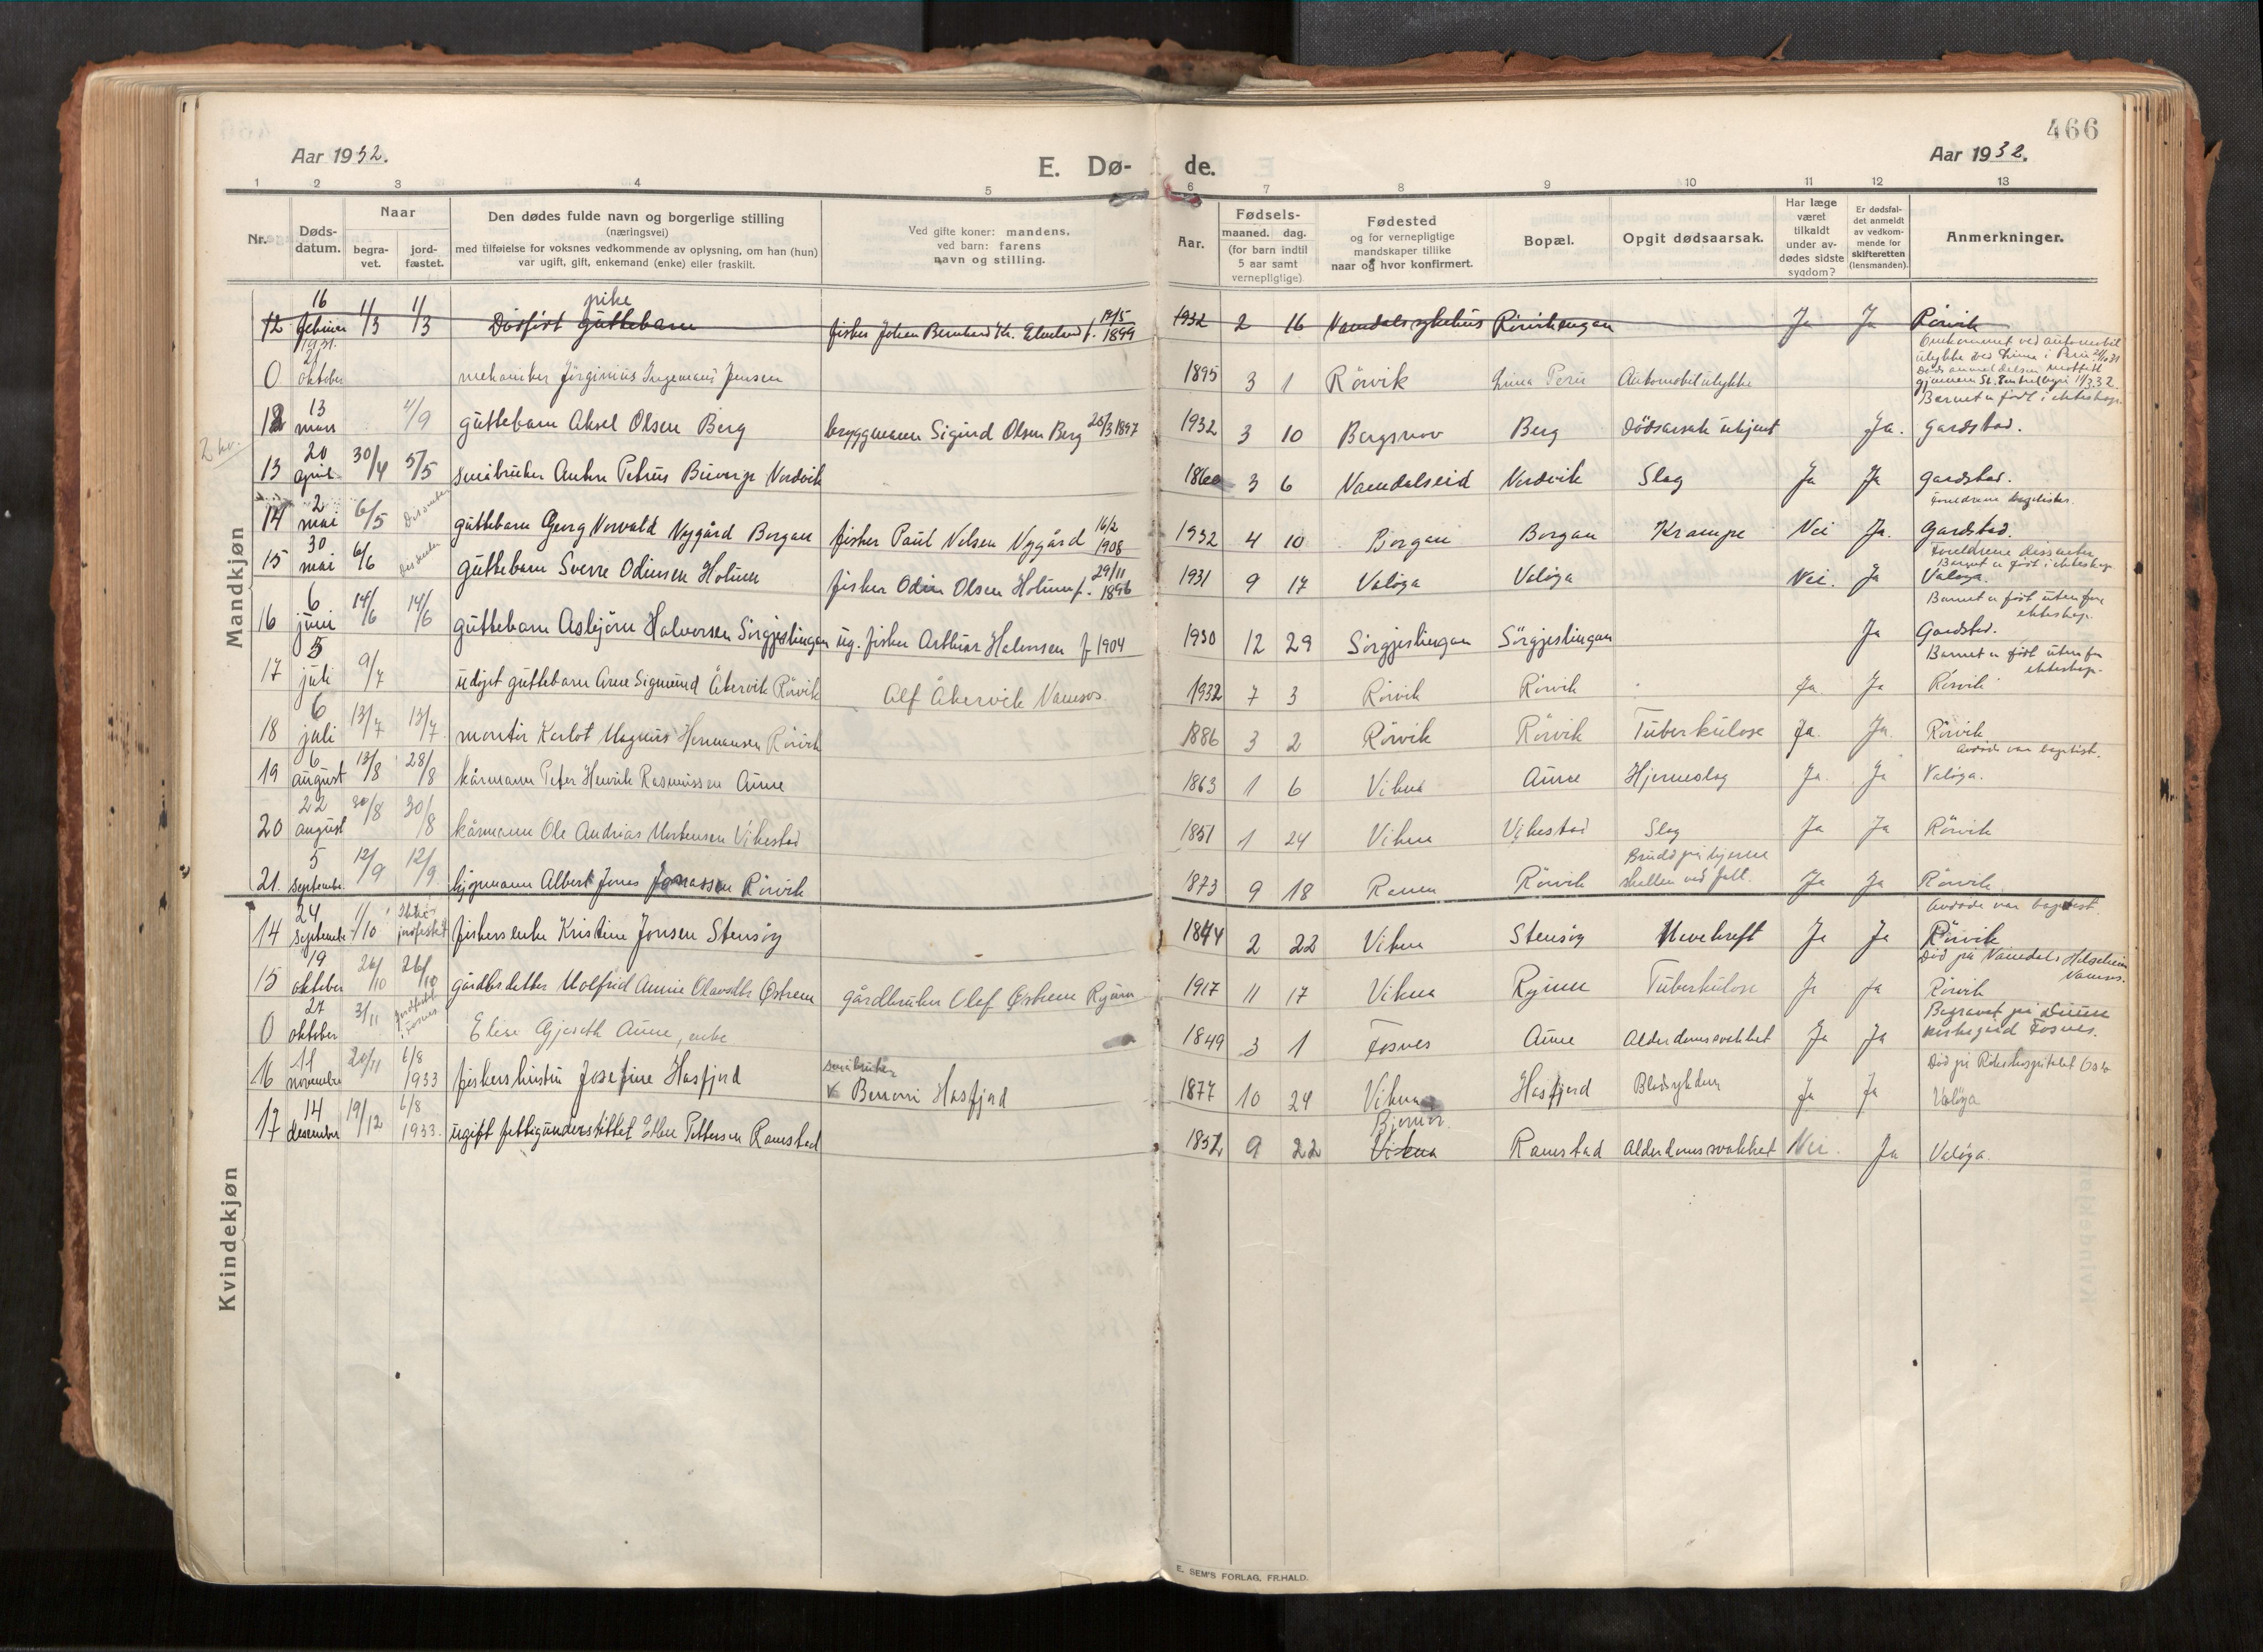 466
Aar 1932.
E. Dø-
de.
Aar 1932.
1 2 3 4 5 6 7 8 9 10 11 12 13
Nr.
Døds-
datum.
Naar
begra-
vet.
jord-
fæstet.
Den dødes fulde navn og borgerlige stilling
(næringsvei)
med tilføielse for voksnes vedkommende av oplysning, om han (hun)
var ugift, gift, enkemand (enke) eller fraskilt.
Ved gifte koner: mandens,
ved barn: farens
navn og stilling.
Aar.
Fødsels-
maaned. dag.
(for barn indtil
5 aar samt
vernepligtige)
Fødested
og for vernepligtige
mandskaper tillike
naar og hvor konfirmert.
Bopæl.
Opgit dødsaarsak.
Har læge
været
tilkaldt
under av-
dødes sidste
sygdom?
Er dødsfal-
det anmeldt
av vedkom-
mende for
skifteretten
(lensmanden).
Anmerkninger.
Mandkjøn
12 16 februar 1/3 1/3 Dødfødt guttebarn pike fisker Johan Bernhard Elvelund f. 12/5 1899 1932 2 16 Namdals sykehus Rørvikengan Ja Ja Rørvik
0 1931. 21 oktober mekaniker Jørginius Ingemans Jensen 1895 3 1 Rørvik Lima Peru Automobilulykke Omkommet ved automobil
ulykke ved Lima i Peru 21/10 31
Døds anmeldelsen mottatt
gjennem St. Sentralbyrå 11/3 32.
Barnet er født i ekteskap.
12 13 mars 4/9 guttebarn Aksel Olsen Berg bryggmann Sigurd Olsen Berg 28/3 1897 1932 3 10 Bergsnov Berg Dødsarsak ukjent Ja. Gardstad.
2 kv.
13 20 april 30/4 5/5 småbruker Anton Petrus Buvarp Nordvik 1860 3 6 Namdalseid Nordvik Slag Ja Ja Gardstad.
Foreldrene baptister.
14 2 mai 6/5 Dissenter guttebarn Georg Norvald Nygård Borgan fisker Paul Nelsen Nygård 16/2 1908 1932 4 10 Borgan Borgan Krampe Nei Ja. Gardstad.
Foreldrene dissenter
Barnet er født i ekteskap
15 30 mai 6/6 Dissenter guttebarn Sverre Odinsen Holmen fisker Odin Olsen Holmen f. 29/11 1896 1931 9 17 Valøya Valøya Nei. Ja Valøya.
Barnet er født utenfor
ekteskap.
16 6 juni 14/6 14/6 guttebarn Asbjørn Halvorsen Sørgjeslingan ug. fisker Arthur Halvorsen f 1904 1930 12 29 Sørgjeslingan Sørgjeslingan Ja Gardstad.
Barnet er født utenfor
ekteskap.
17 5 juli 9/7 udøpt guttebarn Arne Sigmund Åkervik Rørvik Alf Åkervik Namsos 1932 7 3 Rørvik Rørvik Ja. Ja Rørvik
18 6 juli 13/7 13/7 montør Karlot Magnus Hermansen Rørvik 1886 3 2 Rørvik Rørvik Tuberkulose Ja. Ja. Rørvik
Avdøde var baptist.
19 6 august 13/8 28/8 kårmann Peter Henrik Rasmussen Aune 1863 1 6 Vikna Aune Hjerneslag Ja. Ja Valøya.
20 22 august 30/8 30/8 kårmann Ole Andrias Mortensen Vikestad 1851 1 24 Vikna Vikestad Slag Ja Ja Rørvik
21. 5 september 12/9 12/9 kjøpmann Albert Jonas Jonassen Rørvik 1873 9 18 Ranen Rørvik Brudd på hjerne
skallen ved fall. Ja Ja Rørvik
Kvindekjøn
Avdøde var baptist.
14 24 september 1/10 Ikke jordfestet fiskersenke Kristine Jonsen Stensøy 1844 2 22 Vikna Stensøy Mavekreft Ja Ja Rørvik
Død på Namdals Helseheim
Namsos.
15 19 oktober 26/10 26/10 gårdbr.datter Molfrid Annie Olavsdtr Østrem gårdbruker Olaf Østrem Ryum 1917 11 17 Vikna Ryum Tuberkulose Ja Ja Rørvik
Begravet på Dun
kirkegård Fosnes.
0 27 oktober 3/11 Jordfestet i Fosnes Elise Gjæseth Aune, enke 1849 3 1 Fosnes Aune Alderdomssvakhet Ja Ja
Død på Rikshospitalet Oslo
16 11 november 20/11 6/8 1933 fiskershustru Josefine Hasfjord småbruker Benoni Hasfjord 1877 10 24 Vikna Hasfjord Blodsykdom Ja Ja Valøya
17 14 desember 19/12 6/8 1933. ugift fattigunderstøttet Ellen Pettersen Ramstad 1852 9 22 Bjørnør. Vikna Ramstad Alderdomssvakhet Nei. Ja Valøya.
E. SEM'S FORLAG, FR.HALD.